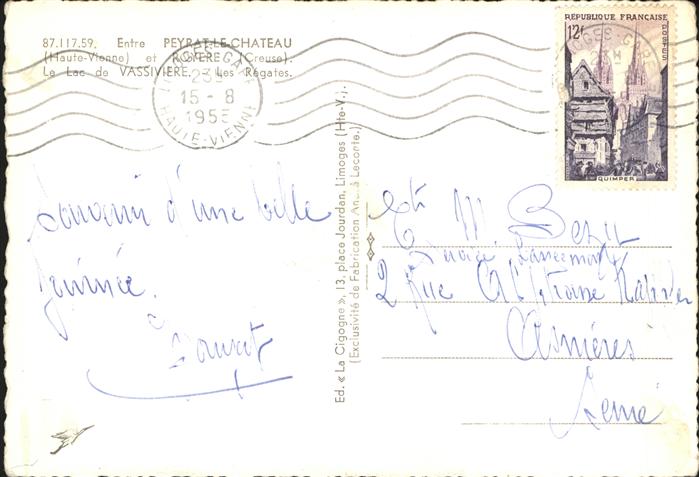 87.117.59. Entre PEYRAT-LE-CHATEAU
(Haute-Vienne) et ROYERE (Creuse).
Le Lac de VASSIVIERE. Les Régates.
LIMOGES-GARE
15 - 8
1955
HAUTE-VIENNE
REPUBLIQUE FRANÇAISE
12f
POSTES
QUIMPER
Souvenir d'une belle
journée.
Ed. « La Cigogne », 13, place Jourdan, Limoges (Hte-V.).
(Exclusivité de Fabrication André Leconte.)
Ets M.
2 Rue
Asnières
Seine